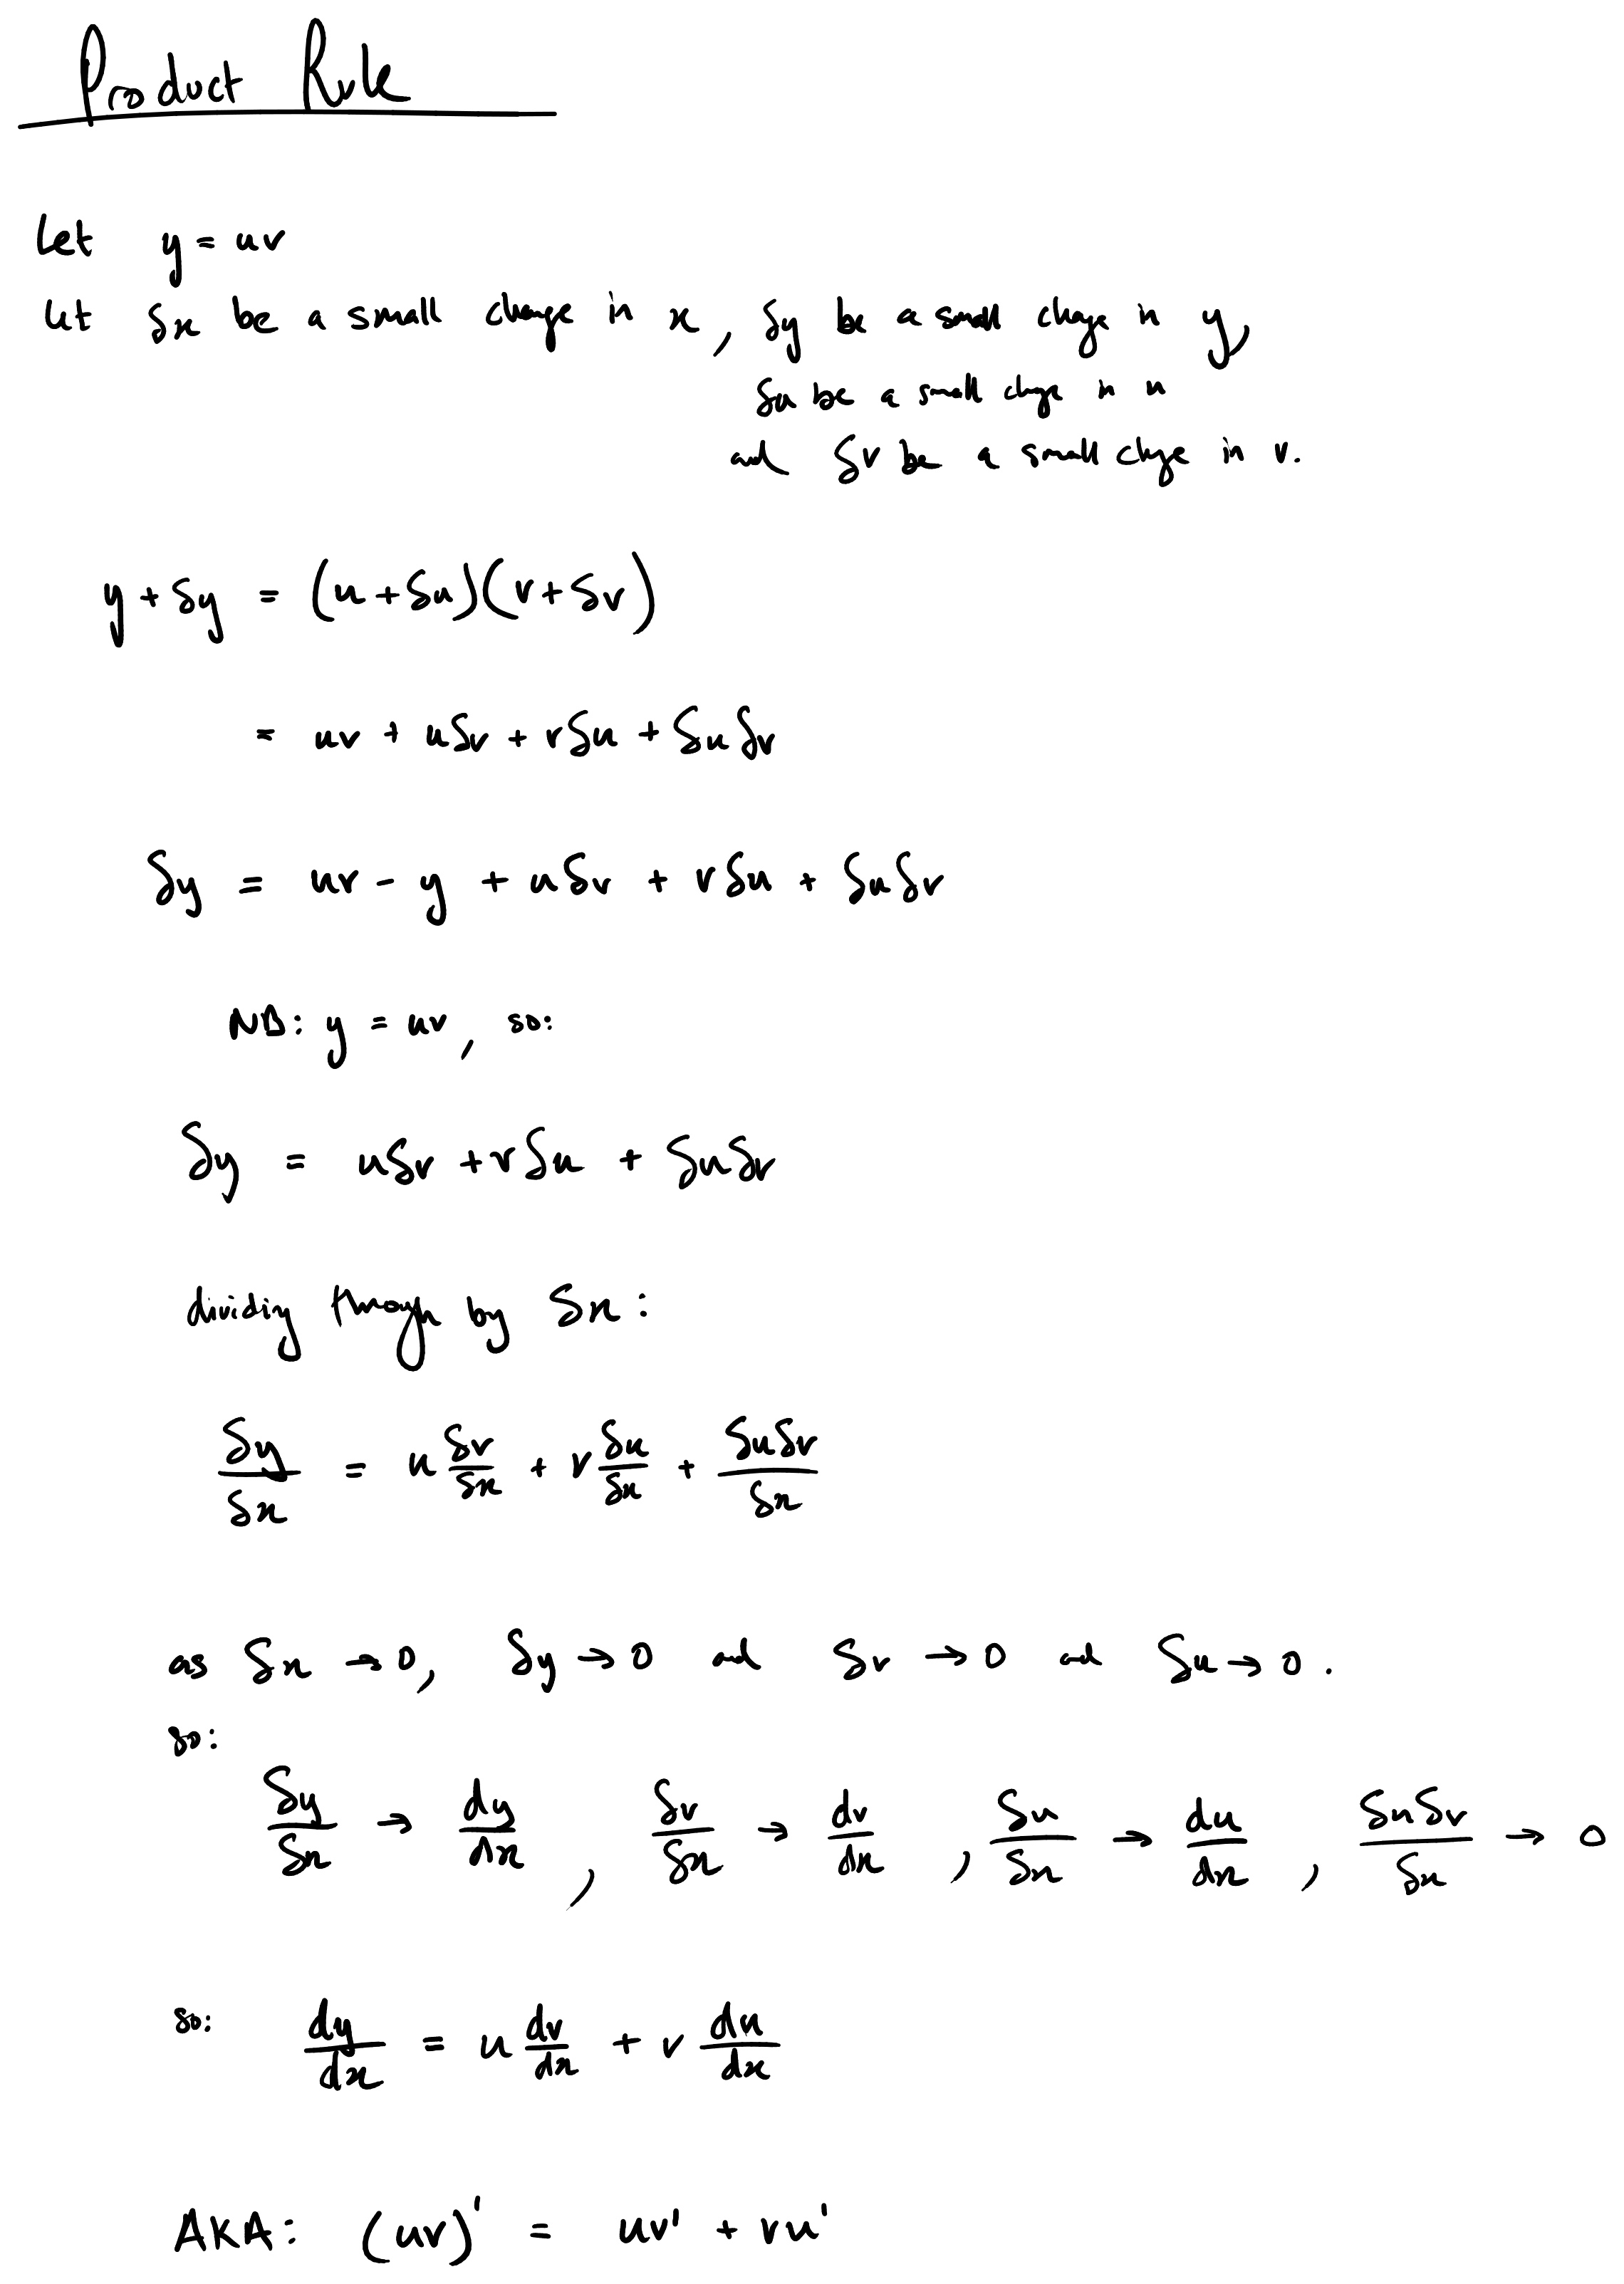 Product Rule
Let y = uv
Let δx be a small change in x, δy be a small change in y,
δu be a small change in u
and δv be a small change in v.
y + δy = (u + δu)(v + δv)
= uv + uδv + vδu + δuδv
δy = uv - y + uδv + vδu + δuδv
NB: y = uv, so:
δy = uδv + vδu + δuδv
dividing through by δx:
δy/δx = u δv/δx + v δu/δx + δuδv/δx
as δx → 0, δy → 0 and δv → 0 and δu → 0.
so:
δy/δx → dy/dx, δv/δx → dv/dx, δu/δx → du/dx, δuδv/δx → 0
so: dy/dx = u dv/dx + v du/dx
AKA: (uv)' = uv' + vu'